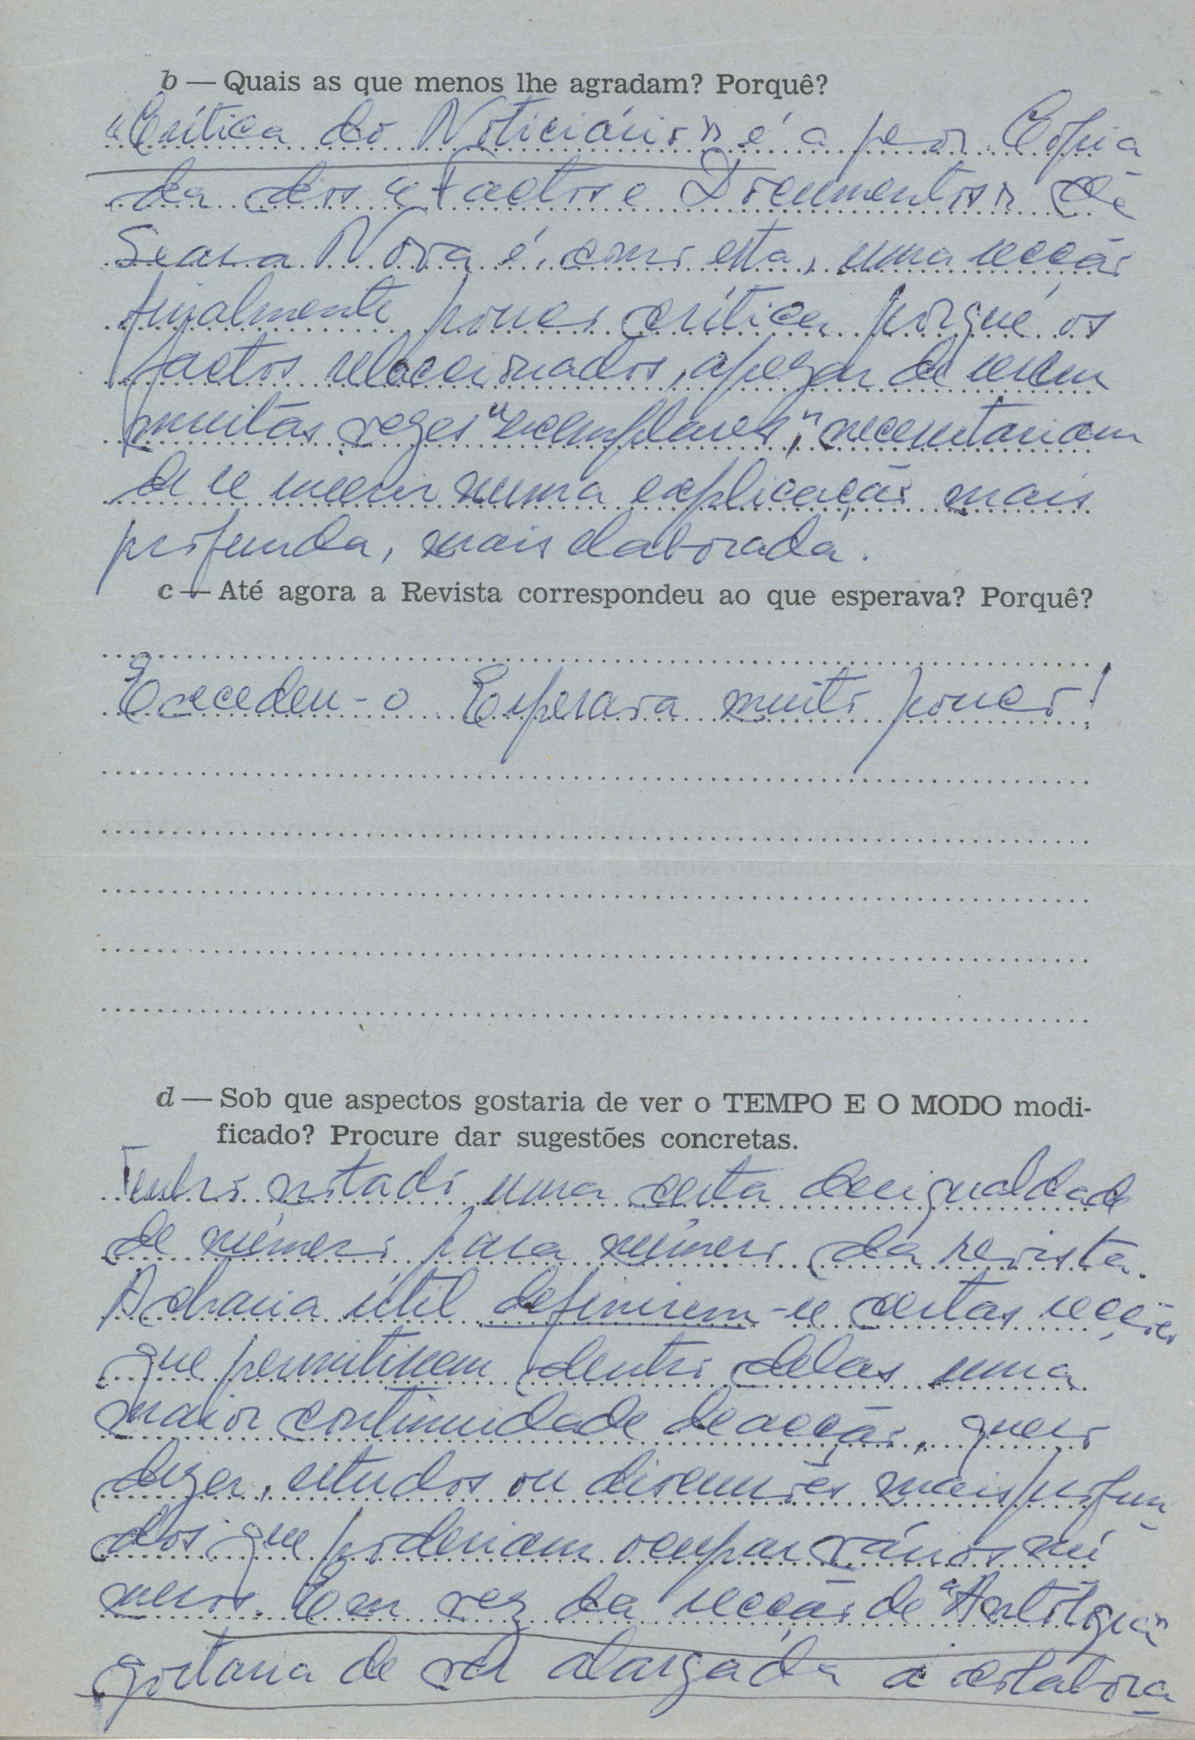 b — Quais as que menos lhe agradam? Porquê?
"Crítica do Noticiário" é a peor. Cópia
da dos "Factos e Documentos" da
Seara Nova é, como esta, uma secção
finalmente pouco crítica porque os
factos relacionados, apezar de serem
muitas vezes "exemplares", necessitariam
de se inserir numa explicação mais
profunda, mais elaborada.
c — Até agora a Revista correspondeu ao que esperava? Porquê?
Excedeu-o Esperava muito pouco!
d — Sob que aspectos gostaria de ver o TEMPO E O MODO modi-
ficado? Procure dar sugestões concretas.
Tenho notado uma certa desigualdade
de número para número da revista.
Acharia útil definirem-se certas secções
que permitissem dentro delas uma
maior continuidade de acção, quero
dizer, estudos ou discussões mais profun
dos que poderiam ocupar vários nú
meros. Em vez da secção de "Antologia"
gostaria de ver alargada a colabora